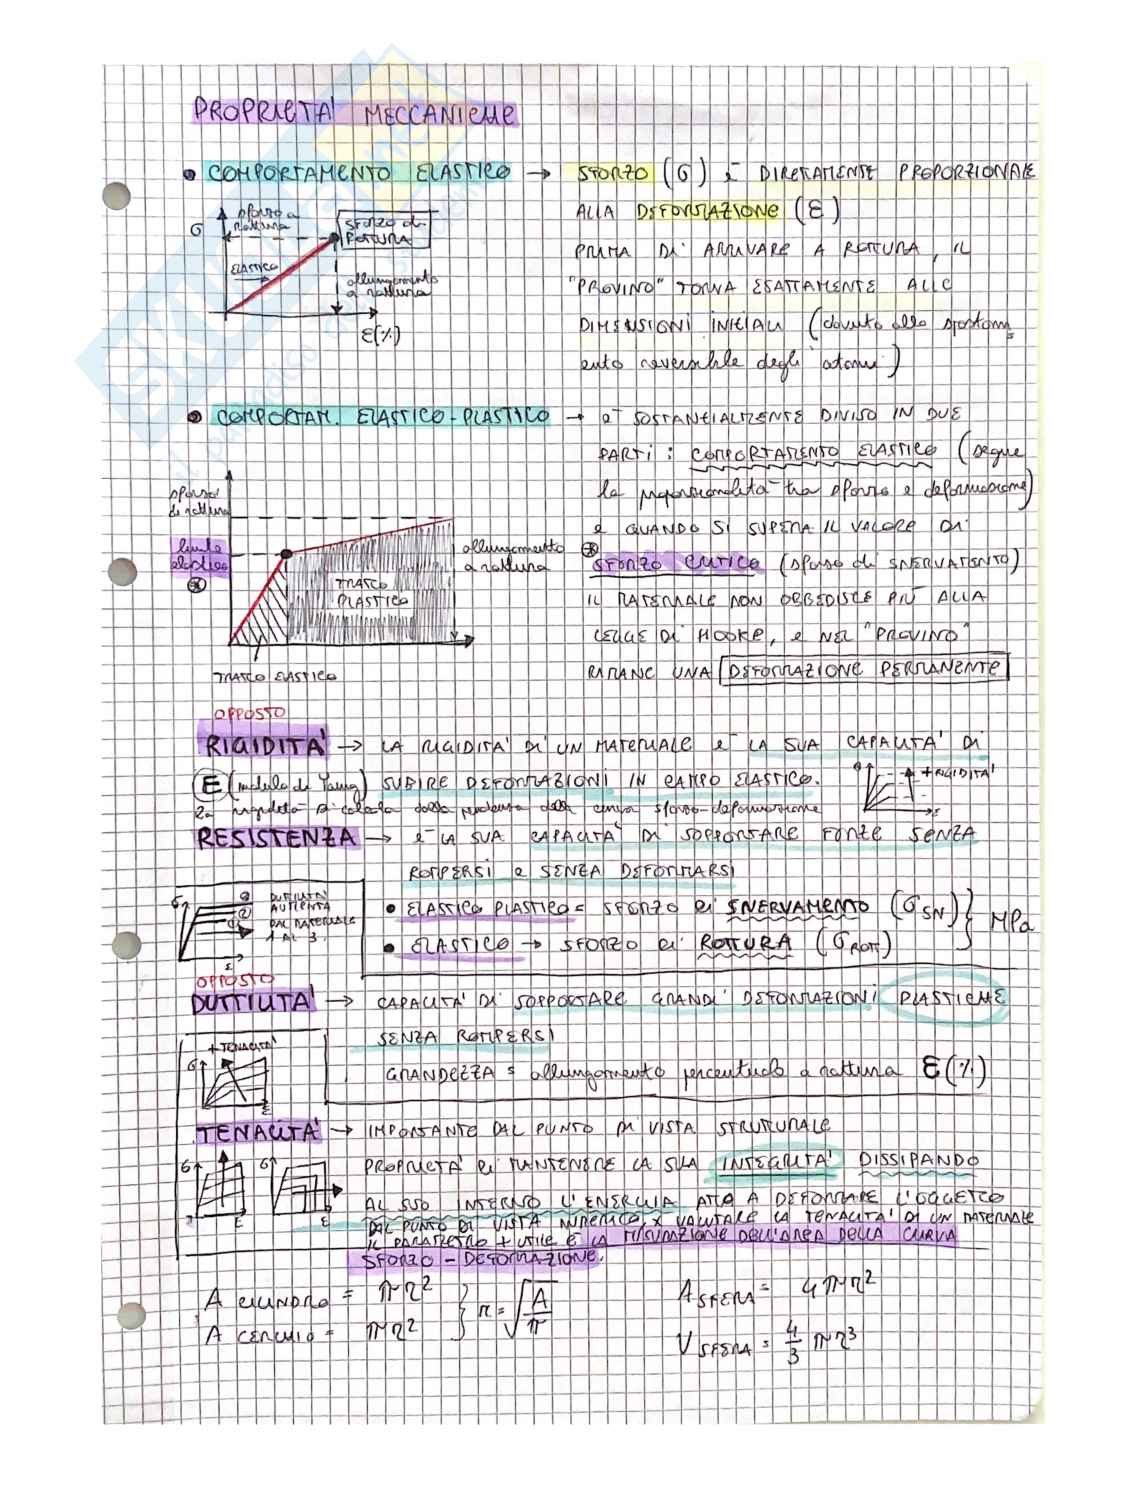 PROPRIETA' MECCANICHE
• COMPORTAMENTO ELASTICO → SFORZO (σ) è DIRETTAMENTE PROPORZIONALE
ALLA DEFORMAZIONE (ε)
PRIMA DI ARRIVARE A ROTTURA, IL
"PROVINO" TORNA ESATTAMENTE ALLE
DIMENSIONI INIZIALI (dovuto allo spostam
ento reversibile degli atomi)
σ
sforzo a rottura
SFORZO di ROTTURA
ELASTICO
allungamento a rottura
ε(%)
• COMPORTAM. ELASTICO-PLASTICO → è SOSTANZIALMENTE DIVISO IN DUE
PARTI: COMPORTAMENTO ELASTICO (segue
la proporzionalità tra sforzo e deformazione)
e QUANDO SI SUPERA IL VALORE DI
SFORZO CRITICO (sforzo di SNERVAMENTO)
IL MATERIALE NON OBBEDISCE PIÙ ALLA
LEGGE DI HOOKE, e NEL "PROVINO"
RIMANE UNA DEFORMAZIONE PERMANENTE
sforzo di rottura
limite elastico
allungamento a rottura
TRATTO PLASTICO
TRATTO ELASTICO
OPPOSTO
RIGIDITA' → LA RIGIDITA' DI UN MATERIALE è LA SUA CAPACITA' DI
E (modulo di Young) SUBIRE DEFORMAZIONI IN CAMPO ELASTICO.
La rigidità si calcola dalla pendenza della curva sforzo-deformazione
σ
+ RIGIDITA'
ε
RESISTENZA → è LA SUA CAPACITA' DI SOPPORTARE FORZE SENZA
ROMPERSI e SENZA DEFORMARSI
• ELASTICO PLASTICO = SFORZO di SNERVAMENTO (σSN)
• ELASTICO → SFORZO di ROTTURA (σROTT)
} MPa
σ
DUTTILITA' AUMENTA DAL MATERIALE 1 AL 3.
ε
OPPOSTO
DUTTILITA' → CAPACITA' DI SOPPORTARE GRANDI DEFORMAZIONI PLASTICHE
SENZA ROMPERSI
GRANDEZZA = allungamento percentuale a rottura ε(%)
+ TENACITA'
σ
ε
TENACITA' → IMPORTANTE DAL PUNTO DI VISTA STRUTTURALE
PROPRIETA' di MANTENERE LA SUA INTEGRITA' DISSIPANDO
AL SUO INTERNO L'ENERGIA ATTA A DEFORMARE L'OGGETTO
DAL PUNTO DI VISTA NUMERICO, x VALUTARE LA TENACITA' DI UN MATERIALE
IL PARAMETRO + UTILE È LA MISURAZIONE DELL'AREA DELLA CURVA
SFORZO - DEFORMAZIONE.
σ ε
σ ε
A CILINDRO = πr²
A CERCHIO = πr²
} r = √A/π
A SFERA = 4πr²
V SFERA = 4/3 πr³